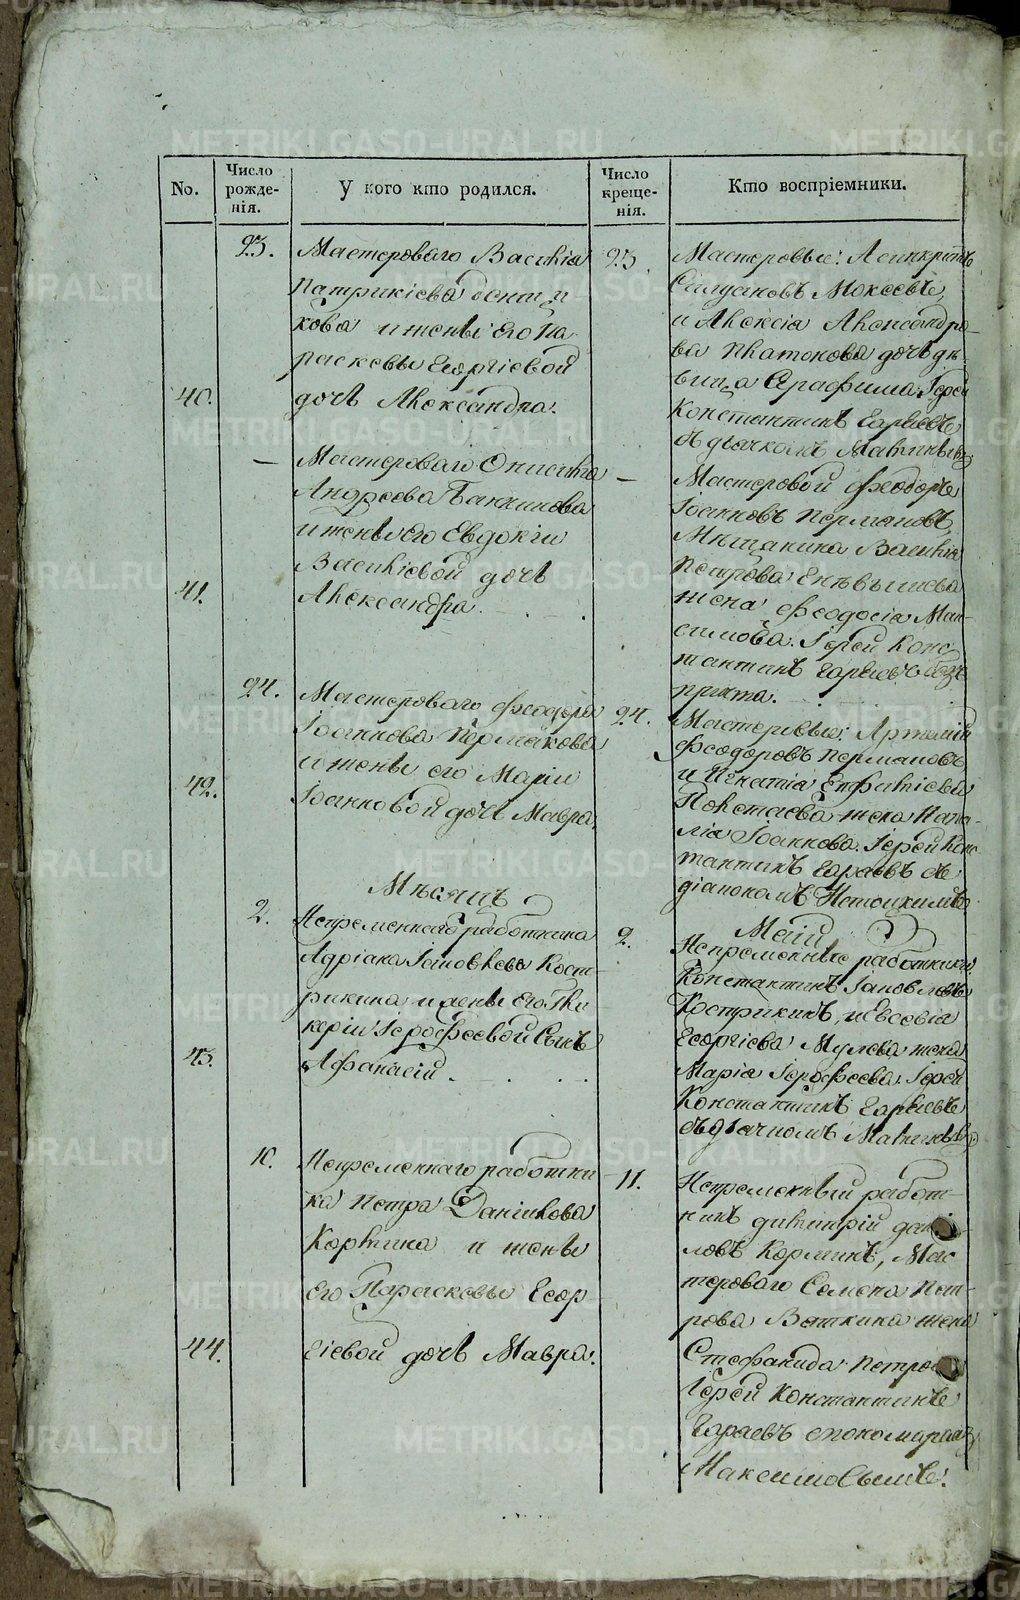 METRIKI.GASO-URAL.RU
No.
Число рожде-нія.
У кого кто родился.
Число креще-нія.
Кто воспріемники.
23.
Мастероваго Василія
Патрикіева
кова и жены его Па
раскевы Егоргіевой
40.
дочь Александра.
23.
Мастеровые:
Силуановъ Мокеевъ,
и Алексія Александро-
ва Платонова дочь дѣ-
вица Серафима. Іерей
Константинъ
съ дьячкомъ
—
Мастероваго
Андреева
и жены его Евдокіи
Василіевой дочь
41.
Александра.
—
Мастеровой Феодоръ
Іоанновъ Пермаковъ,
Мѣщанина Василія
Петрова
жена Феодосія Мак-
симова. Іерей Конс
тантинъ безъ
причта.
24.
Мастероваго Феодора
Іоаннова Пермакова
и жены его Маріи
42.
Іоанновой дочь Мавра.
24.
Мастеровые: Артемій
Феодоровъ Пермаковъ
и Игнатія
жена Ната-
лія Іоаннова. Іерей Конс
тантинъ съ
діакономъ
Мѣсяцъ
Маій
2.
Непременнаго работника
Адріана Іаковлева Кост-
рикина и жены его Гли
керіи Іерофеевой сынъ
43.
Афанасій.
2.
Непременные работники
Константинъ Іаковлевъ
Кострикинъ, и
Егоргіева жена
Марія Іерофеева. Іерей
Константинъ
съ дьячкомъ
10.
Непременнаго работни
ка Петра Данилова
и жены
его Параскевы Егор
44.
гіевой дочь Мавра.
11.
Непременный работ-
никъ Димитрій Дани
ловъ Мас
тероваго Семена Пет-
рова Вяткина жена
Стефанида Петрова
Іерей Константинъ
съ пономаремъ
Максимовымъ.